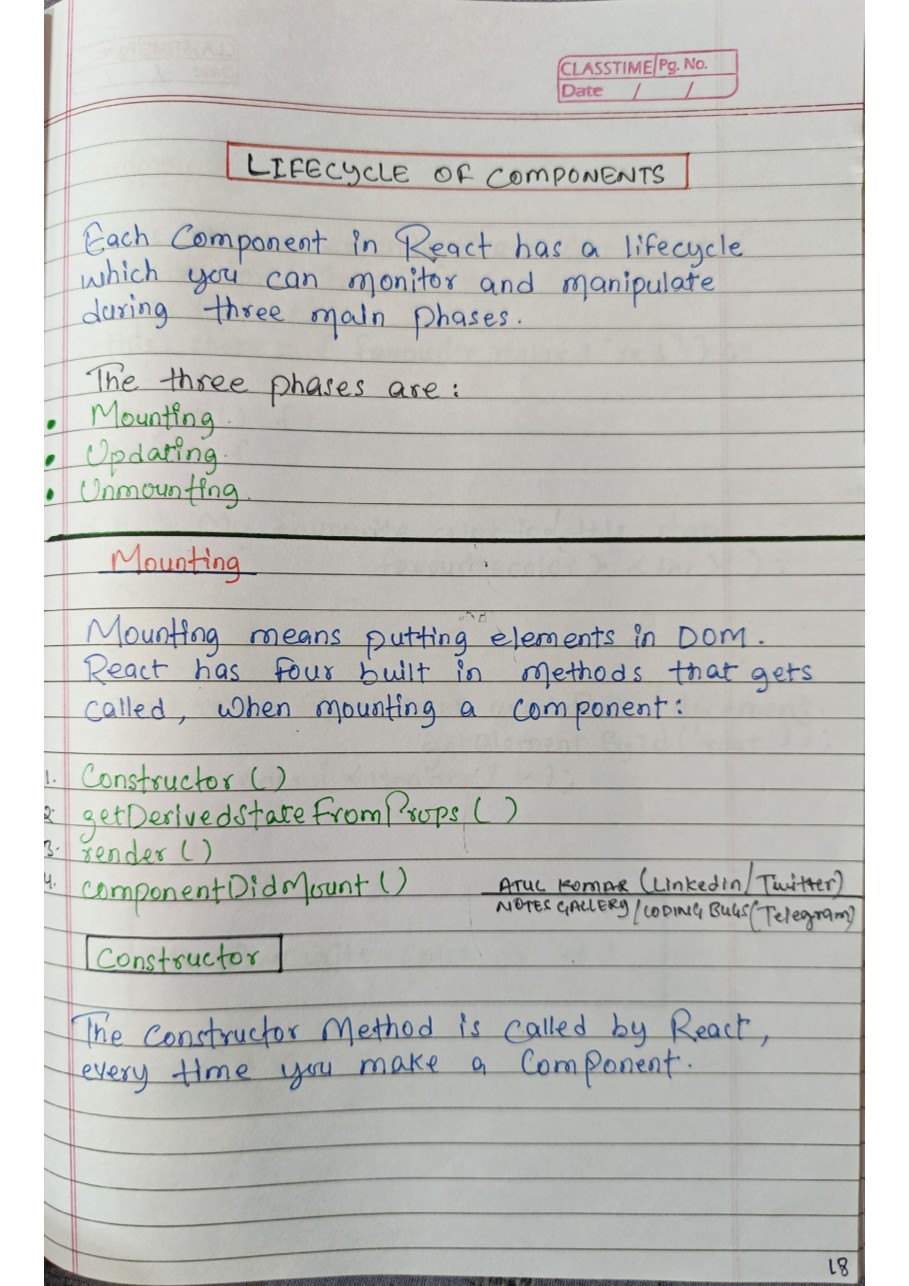 CLASSTIME Pg. No.
Date / /
LIFECYCLE OF COMPONENTS
Each Component in React has a lifecycle
which you can monitor and manipulate
during three main phases.
The three phases are:
• Mounting.
• Updating.
• Unmounting.
Mounting
Mounting means putting elements in DOM.
React has four built in methods that gets
called, when mounting a component:
1. Constructor ()
2. getDerivedStateFromProps ()
3. render ()
4. componentDidMount ()
ATUL KUMAR (Linkedin/Twitter)
NOTES GALLERY/CODING BUGS (Telegram)
Constructor
The Constructor Method is called by React,
every time you make a Component.
18